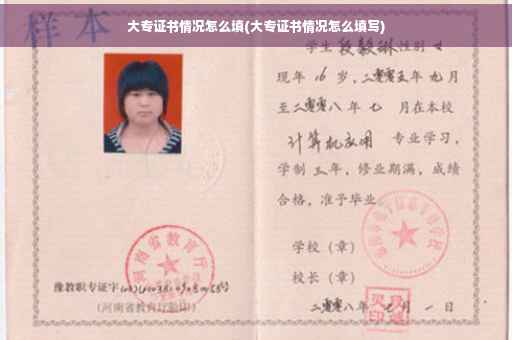 大专证书情况怎么填(大专证书情况怎么填写)
样本
学生段毅琳性别女
现年16岁，二零零五年九月
至二零零八年七月在本校
计算机应用 专业学习，
学制三年，修业期满，成绩
合格，准予毕业
学校（章）
校长（章）
二零零八年七月一日
河南省教育厅
豫教职专证字
(河南省教育厅验印)